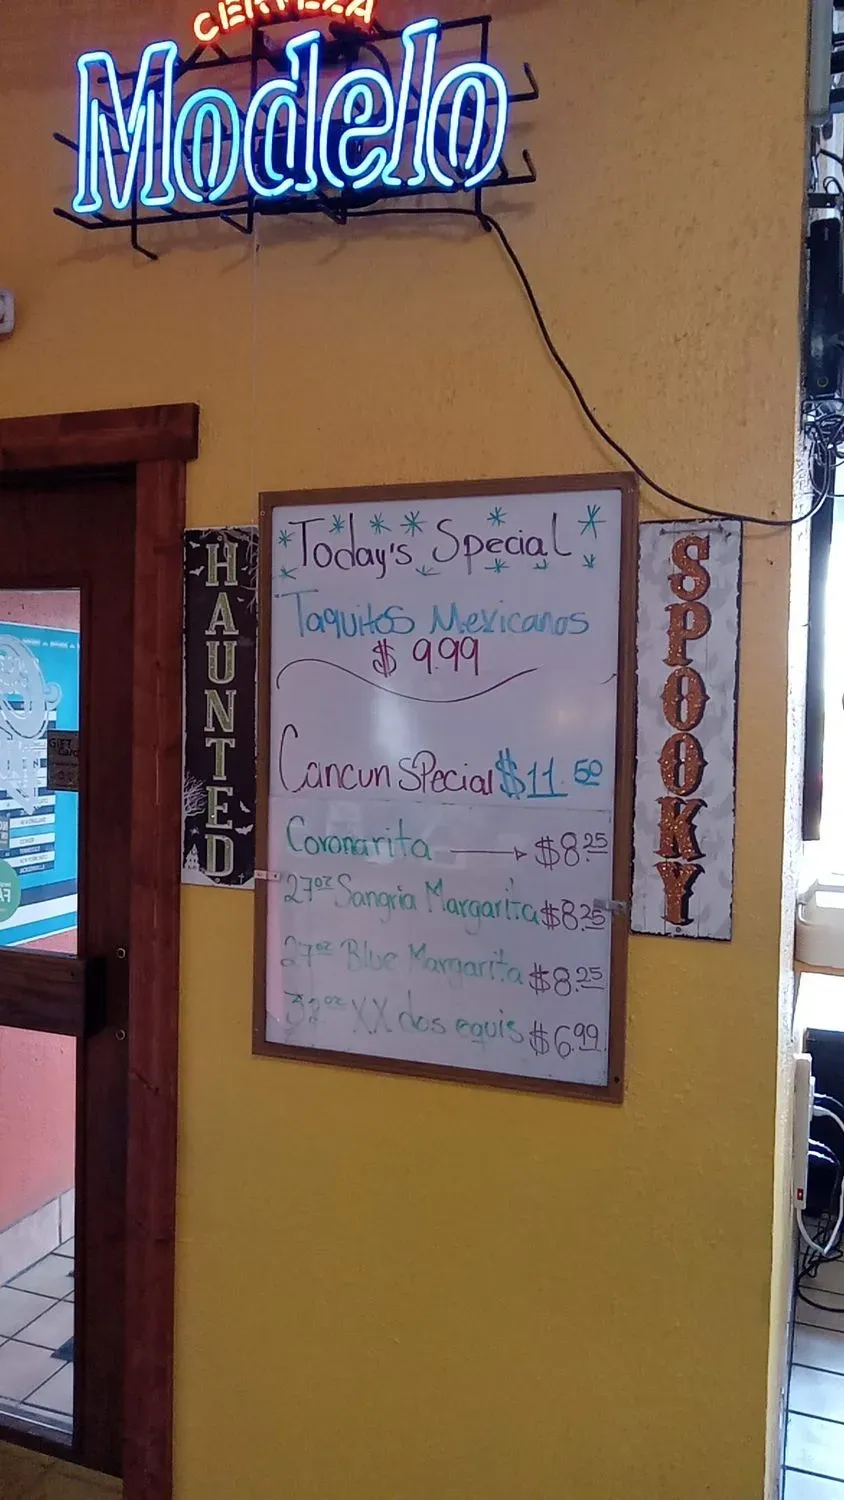 CERVEZA
Modelo
HAUNTED
Today's Special
Taquitos Mexicanos
$ 9.99
Cancun SPecial $11.50
Coronarita $8.25
27oz Sangria Margarita $8.25
27oz Blue Margarita $8.25
32oz XX dos equis $6.99
SPOOKY
GIFT